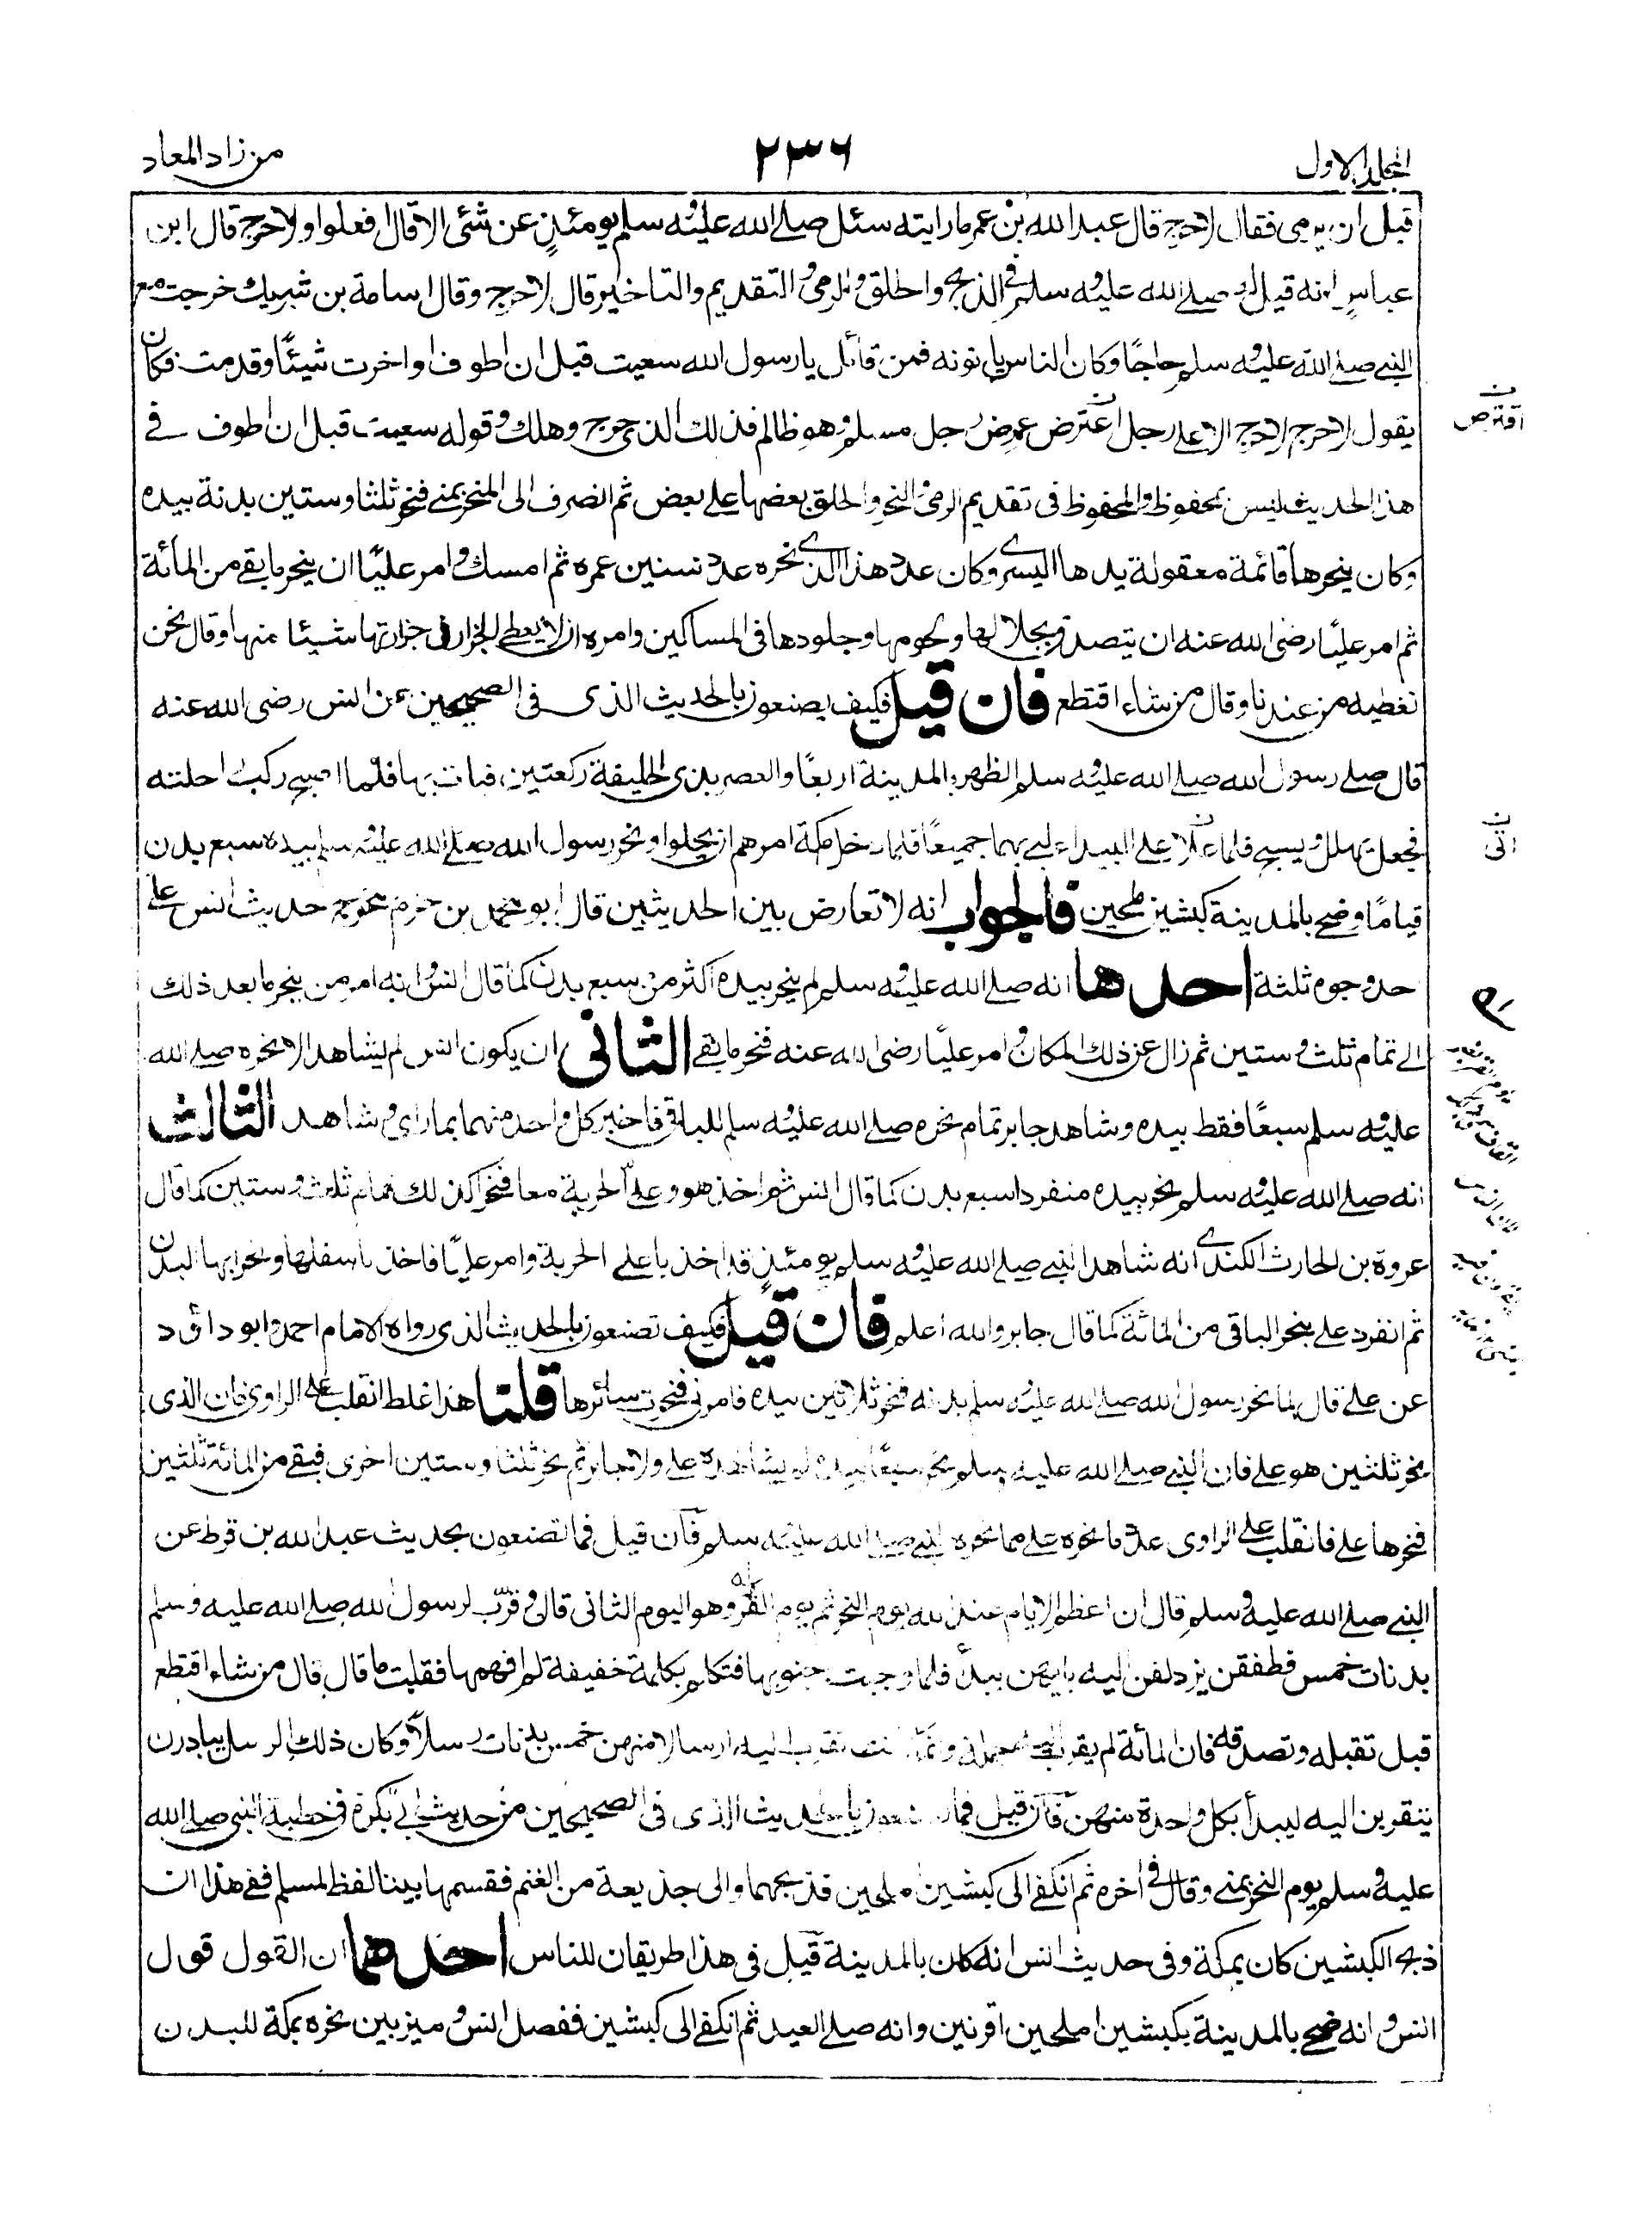 المجلد الاول
۲۳۶
من زاد المعاد
قبل ان يرمى فقال لاحرج قال عبد الله بن عمر ما رايته سئل صلے الله عليه وسلم يومئذٍ عن شئ الا قال افعلوا ولاحرج قال ابن
عباس انه قيل له صلے الله عليه وسلم فى الذبح والحلق والرمى والتقديم والتاخير قال لاحرج وقال اسامة بن شريك خرجت مع
النبى صلے الله عليه وسلم حاجًا وكان الناس ياتونه فمن قائل يا رسول الله سعيت قبل ان اطوف او اخرت شيئًا وقدمت فكان
يقول لاحرج لاحرج الا على رجل اعترض عرض رجل مسلم وهو ظالم فذلك الذى حرج وهلك وقوله سعيت قبل ان اطوف فے
هذا الحديث ليس بمحفوظ والمحفوظ فى تقديم الرمى والنحر والحلق بعضها علے بعض ثم انصرف الى المنحر بمنى فنحر ثلثا وستين بدنة بيده
وكان ينحرها قائمة معقولة يدها اليسرے وكان عدد هذا الذے نحره عدد سنين عمره ثم امسك وامر عليًا ان ينحر ما بقے من المائة
ثم امر عليًا رضى الله عنه ان يتصدق بجلالها ولحومها وجلودها فى المساكين وامره ان لا يعطے الجزار فى جزارتها شيئا منها وقال نحن
نعطيه من عندنا وقال من شاء اقتطع فان قيل فكيف يصنعون بالحديث الذى فى الصحيحين عن انس رضى الله عنه
قال صلے رسول الله صلے الله عليه وسلم الظهر بالمدينة اربعًا والعصر بذى الحليفة ركعتين فبات بها فلما اصبح ركب راحلته
فجعل يهلل ويسبح فلما علا علے البيداء لبے بهما جميعًا فلما دخل مكة امرهم ان يحلوا ونحر رسول الله صلے الله عليه وسلم بيده سبع بدن
قيامًا وضحے بالمدينة كبشين املحين فالجواب انه لا تعارض بين الحديثين قال ابو محمد بن حزم مخرج حديث انس علے
احد وجوه ثلثة احدها انه صلے الله عليه وسلم لم ينحر بيده اكثر من سبع بدن كما قال انس وانه امر من ينحر ما بعد ذلك
الے تمام ثلث وستين ثم زال عن ذلك المكان وامر عليًا رضى الله عنه فنحر ما بقے الثانى ان يكون انس لم يشاهد الا نحره صلے الله
عليه وسلم سبعًا فقط بيده وشاهد جابر تمام نحره صلے الله عليه وسلم للباقى فاخبر كل واحد منهما بما راى وشاهد الثالث
انه صلے الله عليه وسلم نحر بيده منفردا سبع بدن كما قال انس ثم اخذ هو وعلىّ الحربة معا فنحرا كذلك تمام ثلث وستين كما قال
عروة بن الحارث الكندے انه شاهد النبى صلے الله عليه وسلم يومئذٍ قد اخذ باعلى الحربة وامر عليًا فاخذ باسفلها ونحرا بها البدن
ثم انفرد على بنحر الباقى من المائة كما قال جابر والله اعلم فان قيل فكيف تصنعون بالحديث الذى رواه الامام احمد وابو داؤد
عن على قال لما نحر رسول الله صلے الله عليه وسلم بدنه فنحر ثلاثين بيده فامرنى فنحرت سائرها قلنا هذا غلط انقلب على الراوى فان الذى
نحر ثلثين هو على فان النبى صلے الله عليه وسلم نحر سبعًا بيده لم يشاهده على ولا جابر ثم نحر ثلثا وستين اخرى فبقے من المائة ثلثين
فنحرها على فانقلب على الراوى عدد ما نحره على بما نحره النبى صلے الله عليه وسلم فان قيل فما تصنعون بحديث عبد الله بن قرط عن
النبى صلے الله عليه وسلم قال ان اعظم الايام عند الله يوم النحر ثم يوم القر وهو اليوم الثانى قال وقرّب لرسول الله صلے الله عليه وسلم
بدنات خمس فطفقن يزدلفن اليه بايتهن يبدأ فلما وجبت جنوبها فتكلم بكلمة خفيفة لم افهمها فقلت ما قال قال من شاء اقتطع
قيل تقبله وتصدقه فان المائة لم يقرب اليه جملة وانما كانت تقرب اليه ارسالا منهن خمس بدنات رسلاً وكان ذلك الرسل يبادرن
يتقربن اليه ليبدأ بكل واحدة منهن فان قيل فما تصنعون بالحديث الذى فى الصحيحين من حديث ابى بكرة فى خطبة النبى صلے الله
عليه وسلم يوم النحر بمنى وقال فى اخره ثم انكفے الى كبشين املحين فذبحهما والى جذيعة من الغنم فقسمها بيننا لفظ المسلم ففے هذا ان
ذبح الكبشين كان بمكة وفى حديث انس انه كان بالمدينة قيل فى هذا طريقان للناس احدهما ان القول قول
انس وانه ضحے بالمدينة بكبشين املحين اقرنين وانه صلے العيد ثم انكفے الى كبشين ففصل انس وميز بين نحره بمكة للبدن
ن
اقترض
ن
اتى